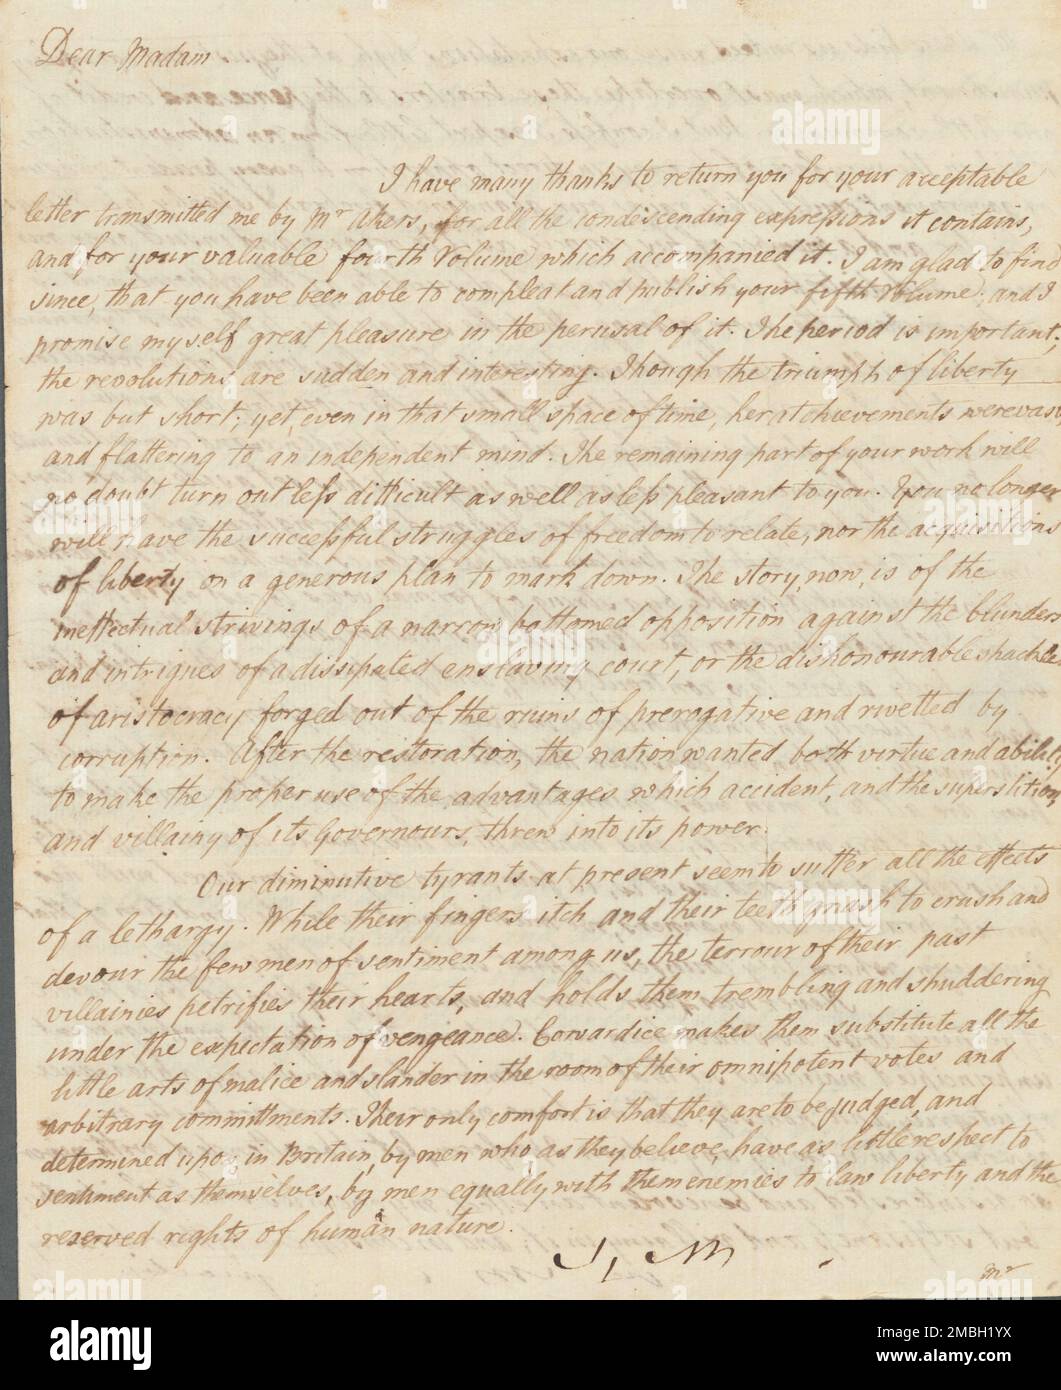 Dear Madam
I have many thanks to return you for your acceptable
letter transmitted me by Mr Akers, for all the condescending expressions it contains,
and for your valuable fourth Volume which accompanied it. I am glad to find
since, that you have been able to compleat and publish your fifth Volume; and I
promise myself great pleasure in the perusal of it. The period is important;
the revolutions are sudden and interesting. Though the triumph of liberty
was but short; yet, even in that small space of time, her atchievements were vast,
and flattering to an independent mind. The remaining part of your work will
no doubt turn out less difficult as well as less pleasant to you. You no longer
will have the successful struggles of freedom to relate, nor the acquisitions
of liberty on a generous plan to mark down. The story, now, is of the
ineffectual strivings of a narrow bottomed opposition against the blunders
and intrigues of a dissipated enslaving court, or the dishonourable shackle
of aristocracy forged out of the ruins of prerogative and rivetted by
corruption. After the restoration, the nation wanted both virtue and ability
to make the proper use of the advantages which accident, and the superstition
and villainy of its Governours, threw into its power.
Our diminutive tyrants at present seem to suffer all the effects
of a lethargy. While their fingers itch and their teeth gnash to crush and
devour the few men of sentiment among us, the terrour of their past
villainies petrifies their hearts, and holds them trembling and shuddering
under the expectation of vengeance. Cowardice makes them substitute all the
little arts of malice and slander in the room of their omnipotent votes and
arbitrary committments. Their only comfort is that they are to be judged, and
determined upon in Britain, by men who as they believe, have as little respect to
sentiment as themselves, by men equally with them enemies to law liberty and the
reserved rights of human nature.
Mr
alamy
Image ID: 2MBH1YX
www.alamy.com